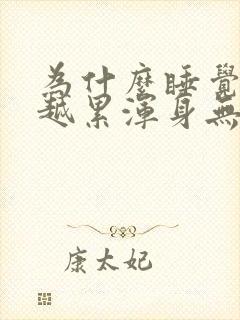 為什麼睡覺
越累渾身無
康太妃